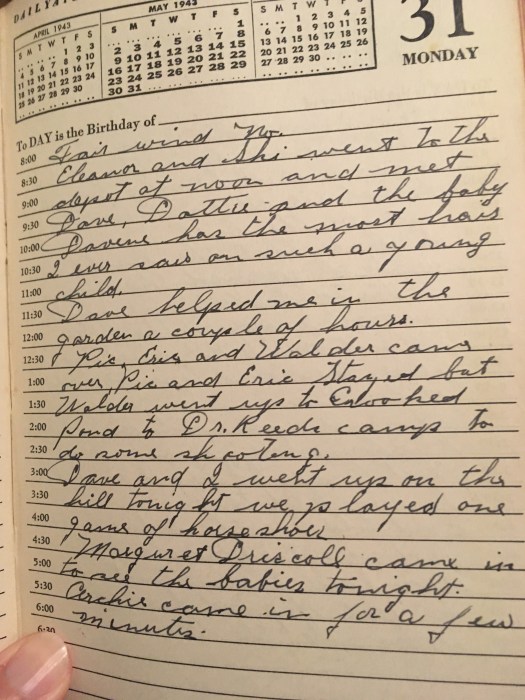 DAILY
APRIL 1943
S M T W T F S
1 2 3
4 5 6 7 8 9 10
11 12 13 14 15 16 17
18 19 20 21 22 23 24
25 26 27 28 29 30
MAY 1943
S M T W T F S
1
2 3 4 5 6 7 8
9 10 11 12 13 14 15
16 17 18 19 20 21 22
23 24 25 26 27 28 29
30 31
S M T W T F S
1 2 3 4 5
6 7 8 9 10 11 12
13 14 15 16 17 18 19
20 21 22 23 24 25 26
27 28 29 30
31
MONDAY
To DAY is the Birthday of
8:00 Fair wind No.
8:30 Eleanor and Shi went to the
9:00 depot at noon and met
9:30 Dave, Dottie and the baby
10:00 Davene has the most hair
10:30 I ever saw on such a young
11:00 child.
11:30 Dave helped me in the
12:00 garden a couple of hours.
12:30 Pic, Eric and Walder came
1:00 over, Pic and Eric stayed but
1:30 Walder went up to Crooked
2:00 Pond to Dr. Reeds camp to
2:30 do some shooting.
3:00 Dave and I went up on the
3:30 hill tonight we played one
4:00 game of horse shoes
4:30 Margaret Driscoll came in
5:00 to see the babies tonight.
5:30 Archie came in for a few
6:00 minutes.
6:30